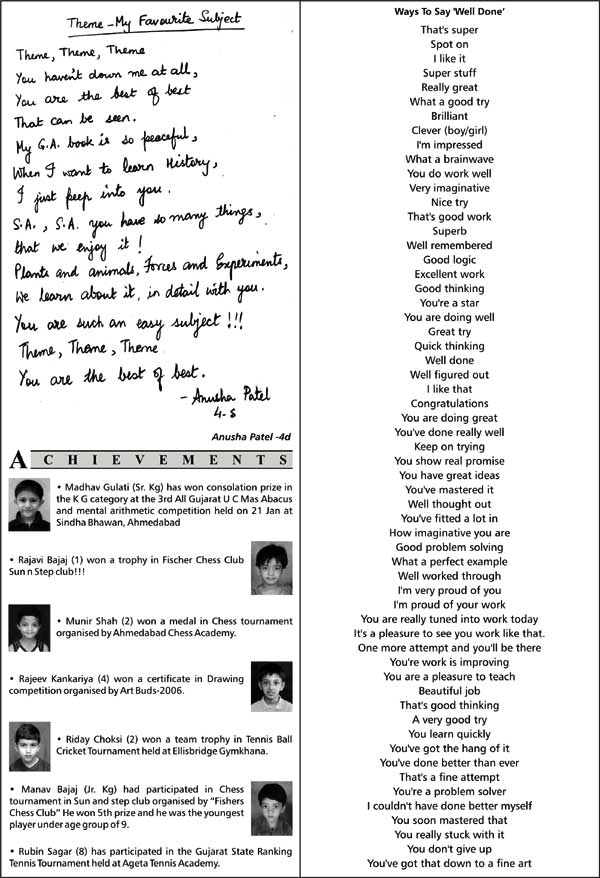 Theme - My Favourite Subject
Theme, Theme, Theme
You haven't down me at all,
You are the best of best
That can be seen.
My G.A. book is so peaceful,
When I want to learn History,
I just peep into you.
S.A., S.A. you have so many things,
that we enjoy it!
Plants and animals, Forces and Experiments,
We learn about it, in detail with you.
You are such an easy subject!!!
Theme, Theme, Theme
You are the best of best.
- Anusha Patel
4-S
Anusha Patel -4d
ACHIEVEMENTS
• Madhav Gulati (Sr. Kg) has won consolation prize in
the K G category at the 3rd All Gujarat U C Mas Abacus
and mental arithmetic competition held on 21 Jan at
Sindha Bhawan, Ahmedabad
• Rajavi Bajaj (1) won a trophy in Fischer Chess Club
Sun n Step club!!!
• Munir Shah (2) won a medal in Chess tournament
organised by Ahmedabad Chess Academy.
• Rajeev Kankariya (4) won a certificate in Drawing
competition organised by Art Buds-2006.
• Riday Choksi (2) won a team trophy in Tennis Ball
Cricket Tournament held at Ellisbridge Gymkhana.
• Manav Bajaj (Jr. Kg) had participated in Chess
tournament in Sun and step club organised by "Fishers
Chess Club" He won 5th prize and he was the youngest
player under age group of 9.
• Rubin Sagar (8) has participated in the Gujarat State Ranking
Tennis Tournament held at Ageta Tennis Academy.
Ways To Say 'Well Done'
That's super
Spot on
I like it
Super stuff
Really great
What a good try
Brilliant
Clever (boy/girl)
I'm impressed
What a brainwave
You do work well
Very imaginative
Nice try
That's good work
Superb
Well remembered
Good logic
Excellent work
Good thinking
You're a star
You are doing well
Great try
Quick thinking
Well done
Well figured out
I like that
Congratulations
You are doing great
You've done really well
Keep on trying
You show real promise
You have great ideas
You've mastered it
Well thought out
You've fitted a lot in
How imaginative you are
Good problem solving
What a perfect example
Well worked through
I'm very proud of you
I'm proud of your work
You are really tuned into work today
It's a pleasure to see you work like that.
One more attempt and you'll be there
You're work is improving
You are a pleasure to teach
Beautiful job
That's good thinking
A very good try
You learn quickly
You've got the hang of it
You've done better than ever
That's a fine attempt
You're a problem solver
I couldn't have done better myself
You soon mastered that
You really stuck with it
You don't give up
You've got that down to a fine art